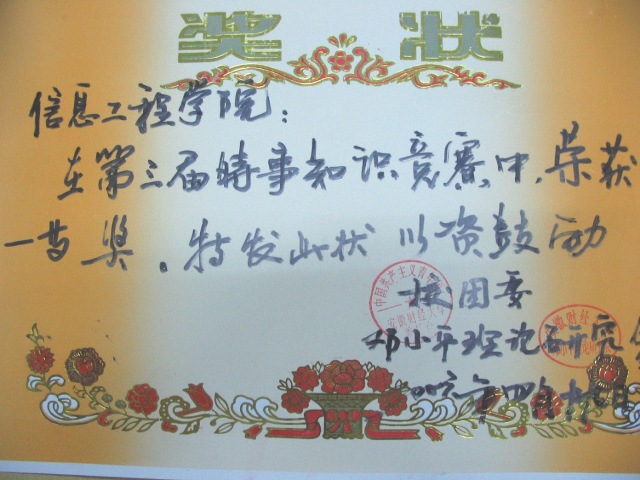 奖状
信息工程学院：
在第三届时事知识竞赛中,荣获
一等奖.特发此状 以资鼓励
校团委
邓小平理论研究
中国共产主义青年
安徽财经大学
徽财经